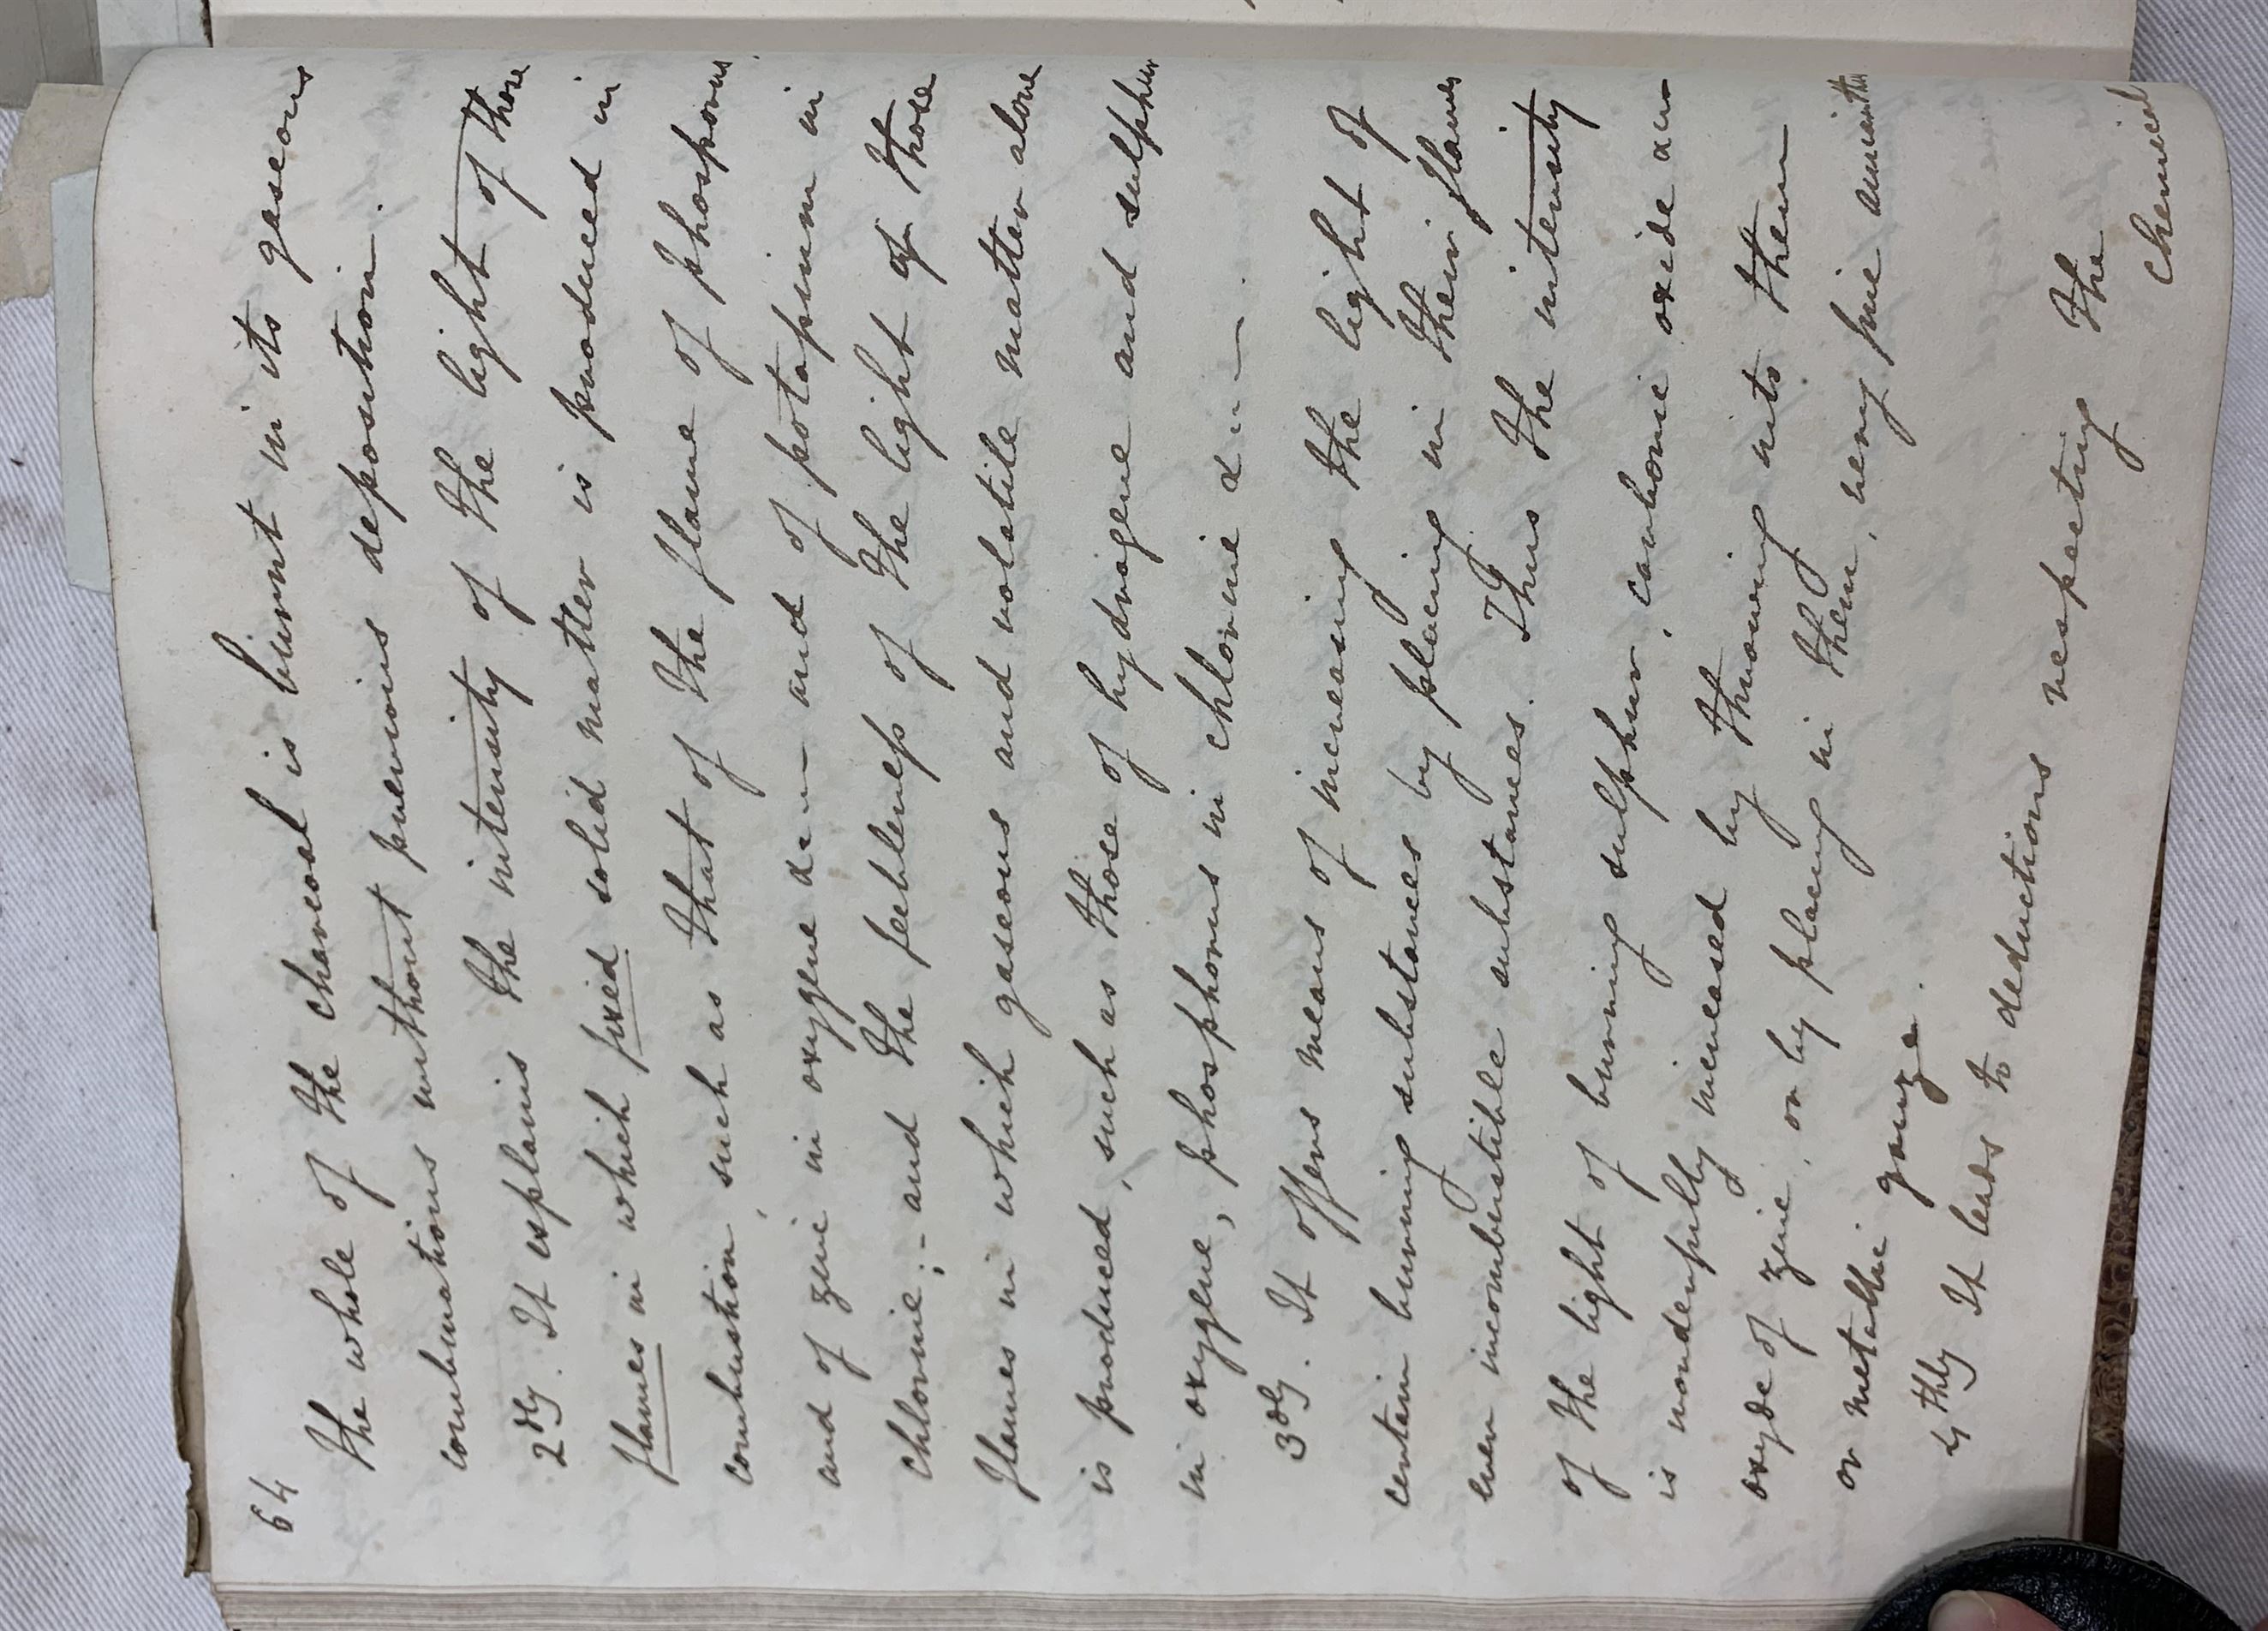 64
the whole of the charcoal is burnt in its gaseous
combinations without previous deposition.
2dly. It explains the intensity of the light of those
flames in which fixed solid matter is produced in
combustion, such as that of the flame of phosporus
and of zinc in oxygene &c — and of potassium in
chlorine; - and the feebleness of the light of those
flames in which gaseous and volatile matter alone
is produced, such as those of hydrogene and sulphur
in oxygene, phosphorus in chlorine &c —
3dly. It offers means of increasing the light of
certain burning substances by placing in their flames
even incombustible substances. Thus the intensity
of the light of burning sulphur, carbonic oxide &c
is wonderfully increased by throwing into them
oxyde of zinc, or by placing in them, very fine amianthus
or metallic gauze.
4thly It leads to deductions respecting the
chemical